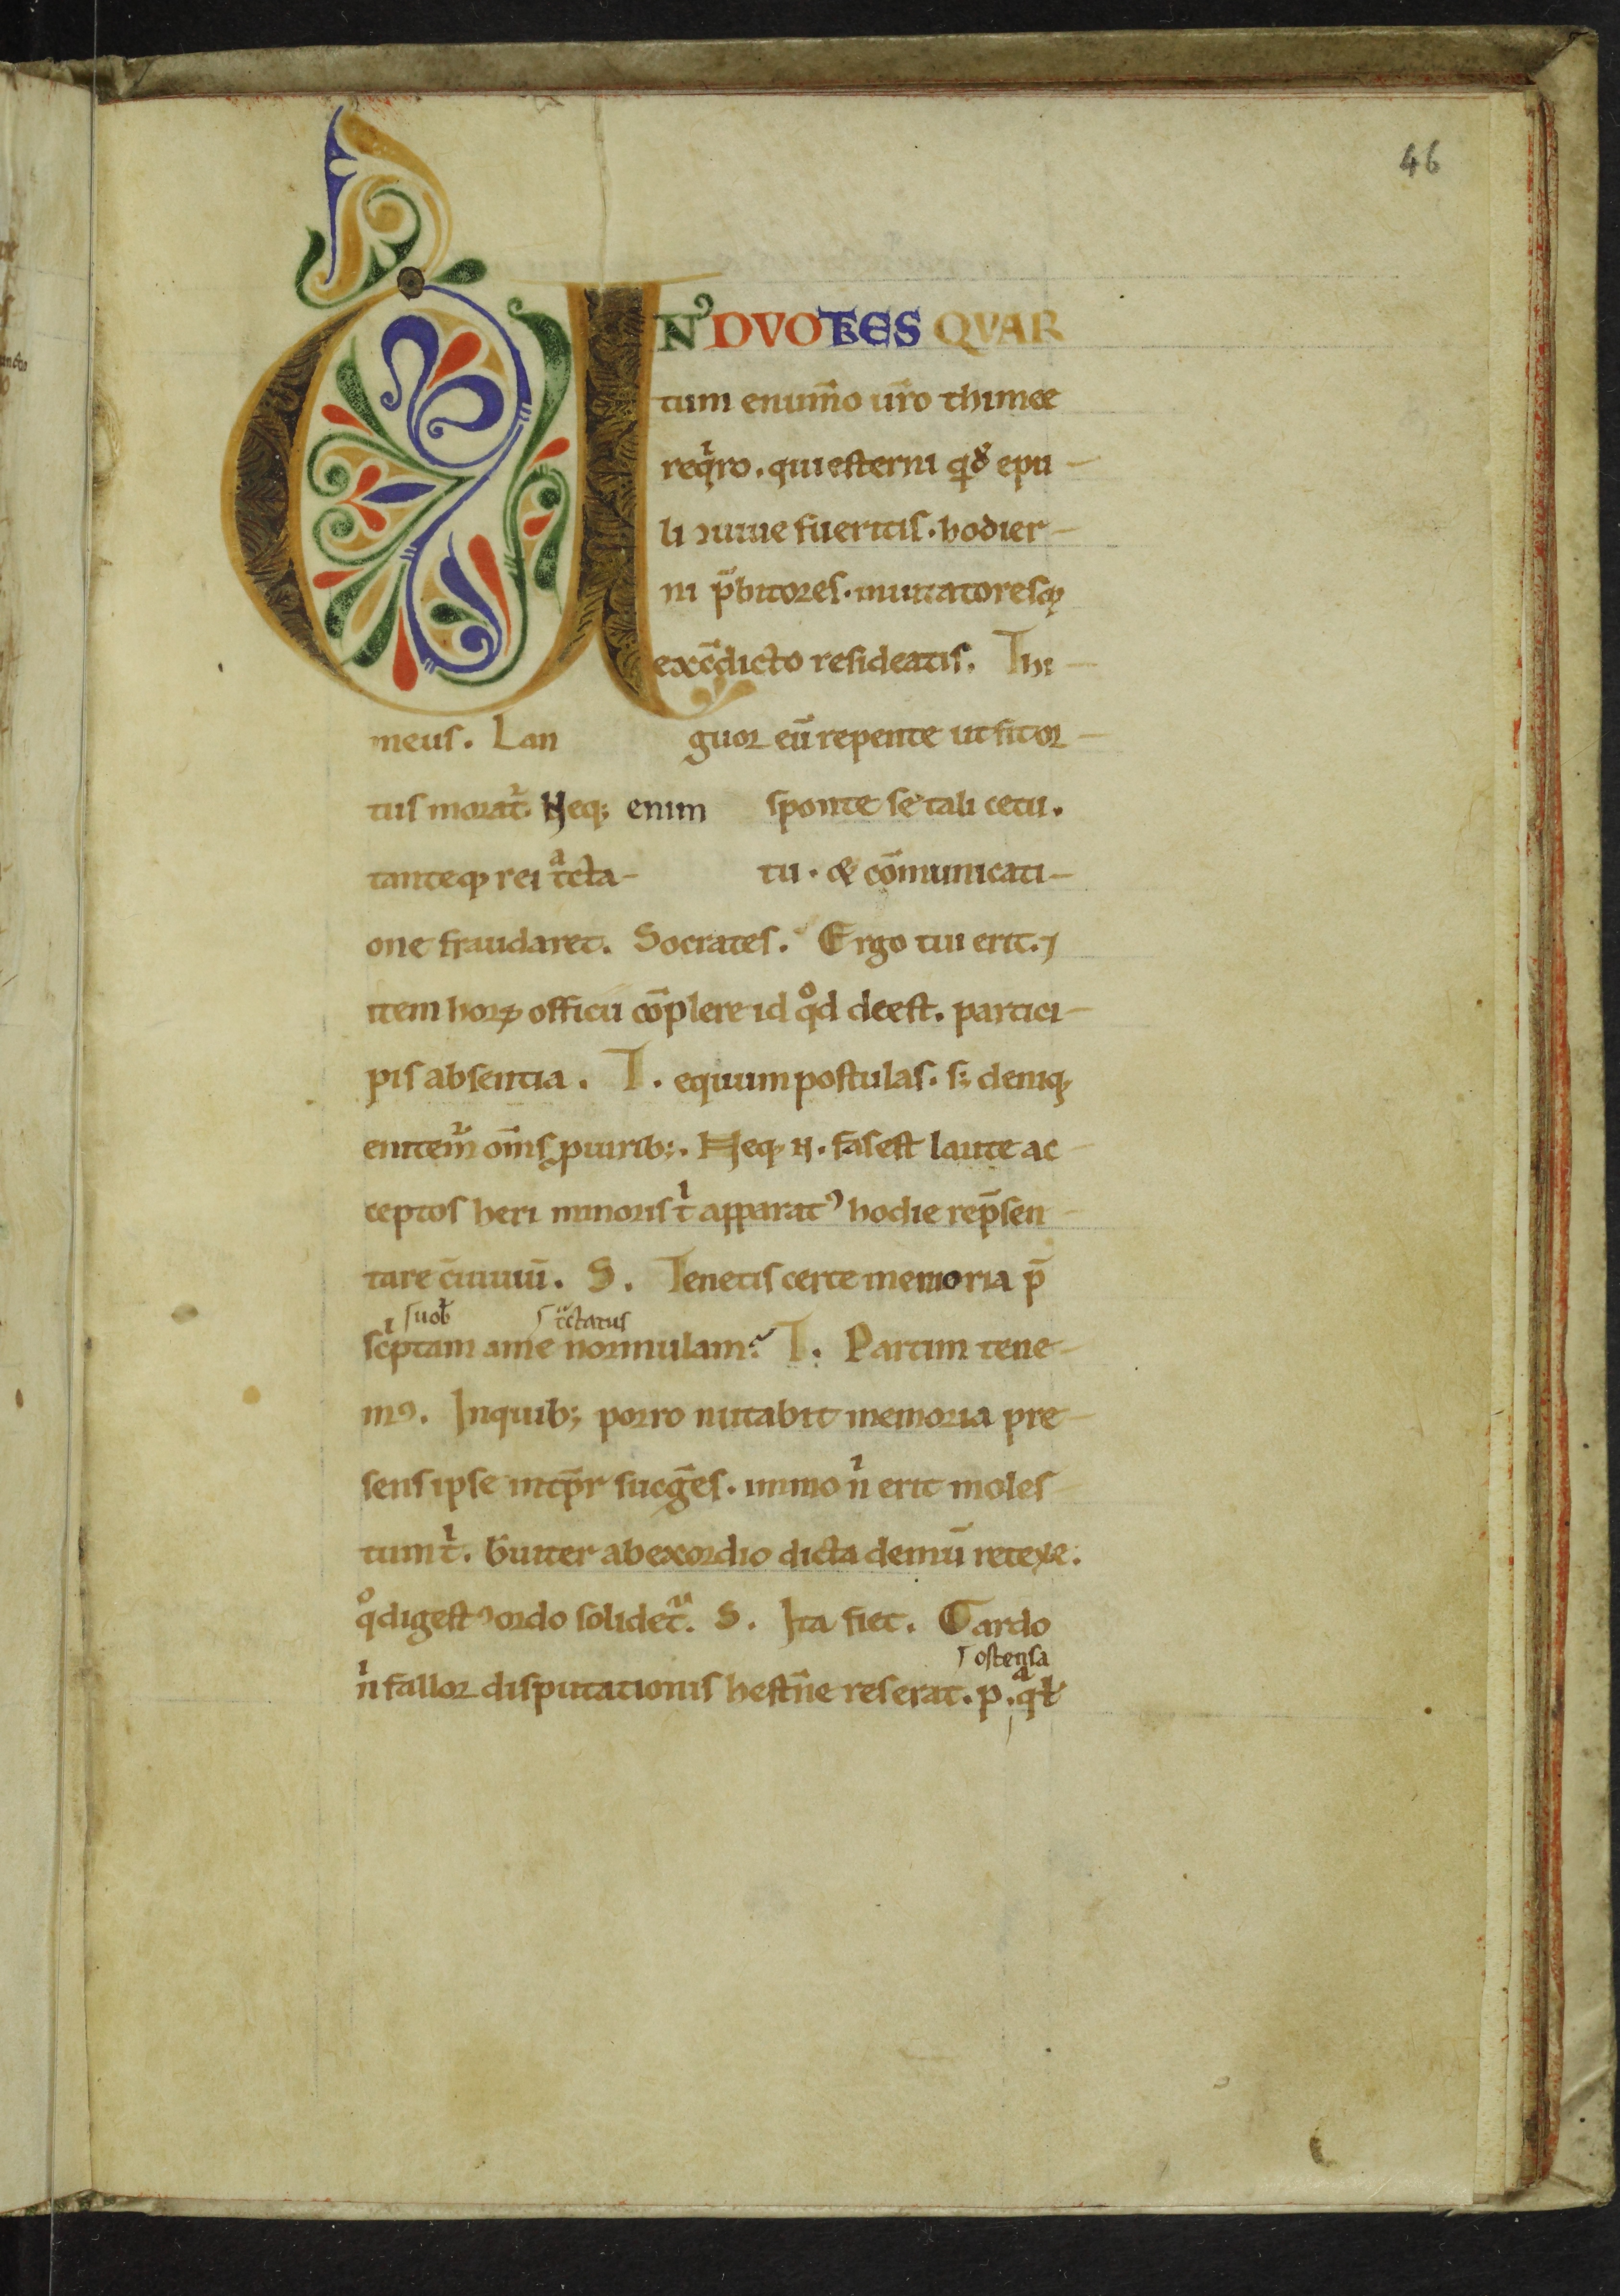 46
UN' DVO TRES QVAR
tum enum̄o ur̄o thimee
reqͥro. qui esterni qͥdē epu-
li ɔuiue fueritis. hodier-
ni p̄bitores. inuitatoresqꝫ
ex cōdicto resideatis. Thi-
meus. Lan guor eū repente ut fit or-
tus morat᷑. Neqꝫ enim sponte se tali cetu.
tanteqꝫ rei tͣcta- tu. & cōmunicati-
one fraudaret. Socrates. Ergo tui erit. ⁊
item horꝝ officii cōplere id qͦd deest. partici-
pis absentia. T. equum postulas. sꝫ deniqꝫ
enitem᷑ om̄s ꝓ uiribꝫ. Neqꝫ n. fas est laute ac-
ceptos heri minoris tͥ apparatꝰ hodie rep̄sen-
tare c̄uiuiū. S. Tenetis certe memoria p̄
suoƀ tͣctatus
scͥptam a me normulam? T. Partim tene-
mꝰ. In quibꝫ porro nutabit memoria pre-
sens ipse int̄pr sucḡes. immo nͥ erit moles-
tum tͥ. b̄uiter ab exordio dicta demū retexe.
qͦ digestꝰ ordo solidet᷑. S. Ita fiet. Cardo
ostensa
nͥ fallor disputationis hest̄ne reserat. p. qͣƚ